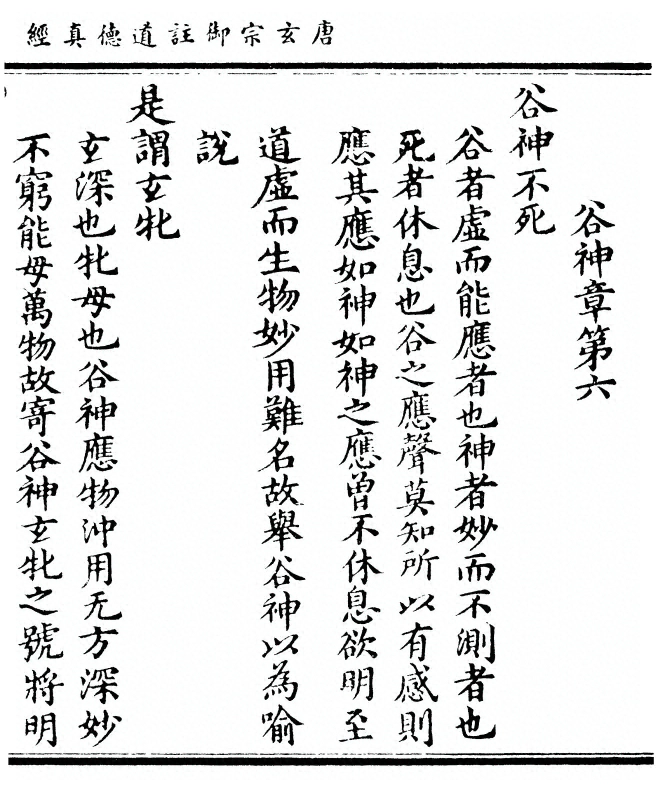 唐玄宗御註道德真經
谷神章第六
谷神不死
谷者虛而能應者也神者妙而不測者也
死者休息也谷之應聲莫知所以有感則
應其應如神如神之應曾不休息欲明至
道虛而生物妙用難名故舉谷神以為喻
說
是謂玄牝
玄深也牝母也谷神應物沖用无方深妙
不窮能母萬物故寄谷神玄牝之號將明